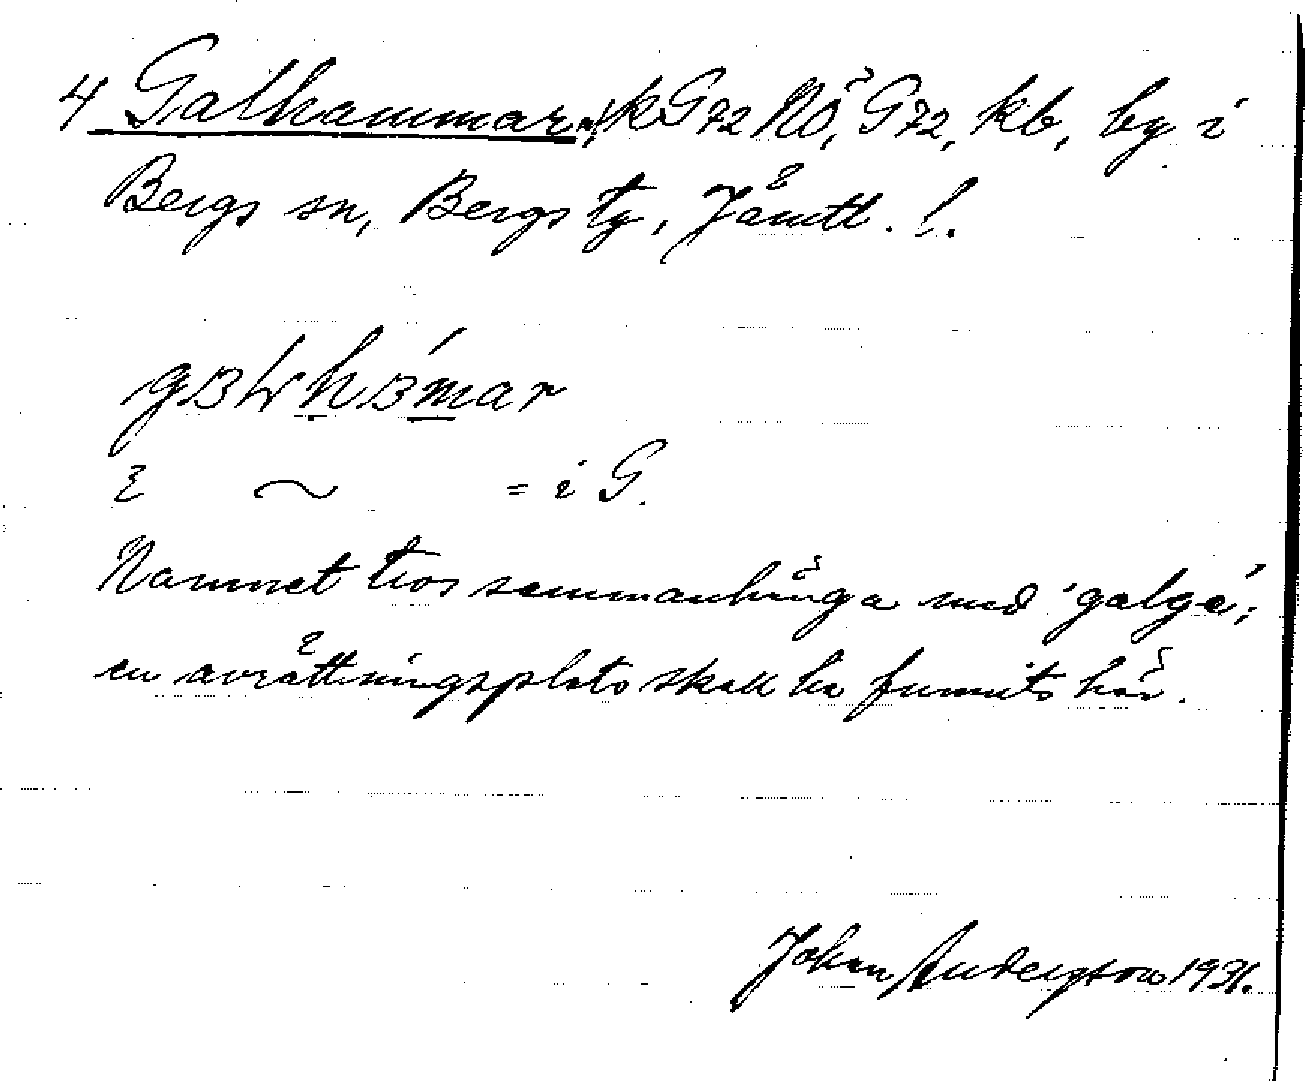 4 Galhammar, kG72NÖ, G72, kb, by i
Bergs sn, Bergs tg, Jämtl. l.
i ~ = i G.
Namnet tros sammanhänga med 'galge';
en avrättningsplats skall ha funnits här.
Johan Andersson 1931.